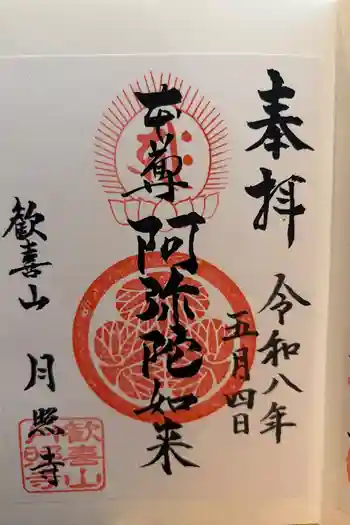 奉拝
令和八年
五月四日
本尊
阿弥陀如来
歓喜山
月照寺
歓喜山
月照寺